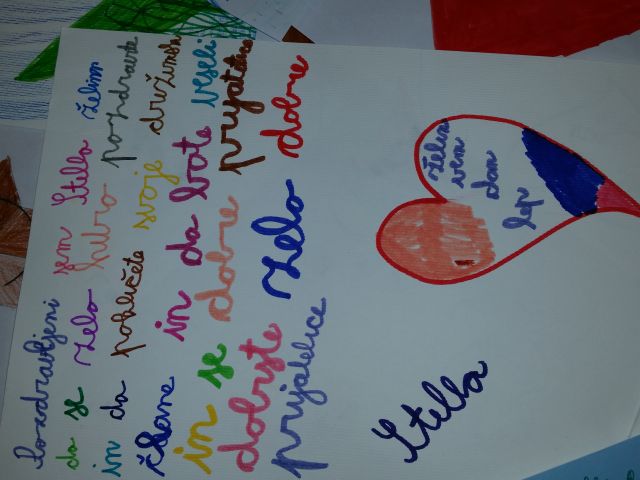 Pozdravljeni sem Stella želim
da se zelo hitro pozdravite
in da pokličete svoje družinske
člane in da bote veseli
in se dobre prijateljice
dobiste zelo dobre
prijateljice
želim
vem
dan
lep
Stella